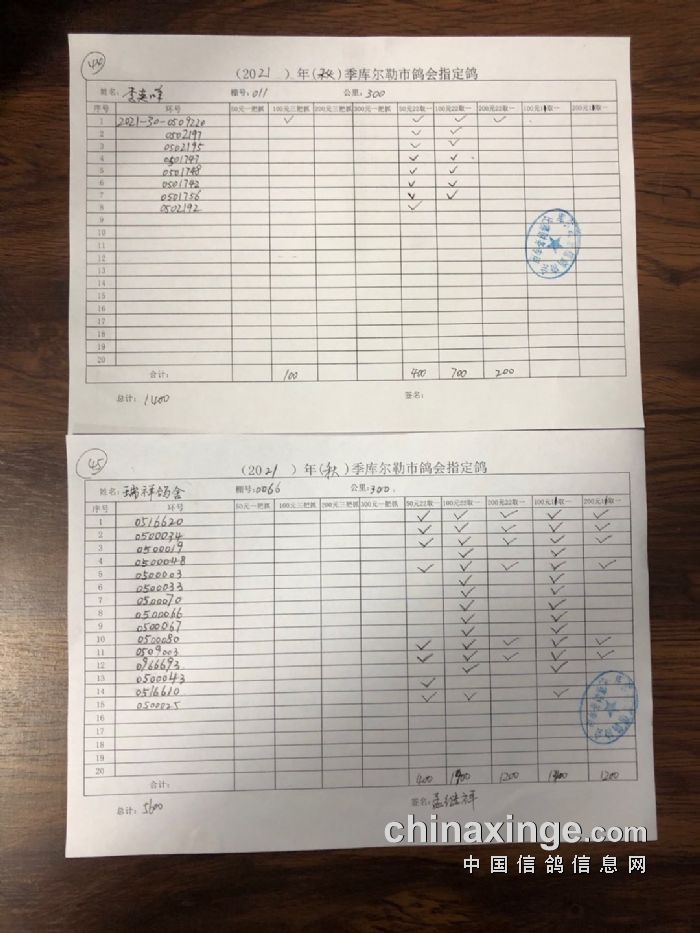 430
（2021 ）年（秋）季库尔勒市鸽会指定鸽
姓名： 棚号：011 公里：300
序号 环号 50元一把抓 100元三把抓 200元三把抓 300元一把抓 50元22取一 100元22取一 200元22取一 100元1 取一 200元1 取一
1 2021-30-0509220 ✓ ✓ ✓ ✓
2 0502197 ✓ ✓
3 0502195 ✓ ✓
4 0501747 ✓ ✓
5 0501748 ✓ ✓
6 0501742 ✓ ✓
7 0501756 ✓ ✓
8 0502192 ✓
9
10
11
12
13
14
15
16
17
18
19
20
合计： 100 400 700 200
总计：1400 签名：
45
（2021 ）年（秋）季库尔勒市鸽会指定鸽
姓名：瑞祥鸽舍 棚号：0066 公里：300.
序号 环号 50元一把抓 100元三把抓 200元三把抓 300元一把抓 50元22取一 100元22取一 200元22取一 100元1 取一 200元1 取一
1 0516620 ✓ ✓ ✓ ✓ ✓
2 0500034 ✓ ✓ ✓ ✓ ✓
3 0500019 ✓ ✓ ✓ ✓ ✓
4 0500048 ✓
5 0500003 ✓ ✓ ✓ ✓ ✓
6 0500033 ✓ ✓
7 0500070 ✓ ✓
8 0500066 ✓ ✓
9 0500067 ✓ ✓
10 0500080 ✓ ✓
11 0509003 ✓ ✓ ✓ ✓ ✓
12 0966693 ✓ ✓ ✓ ✓ ✓
13 0500043 ✓ ✓
14 0516610 ✓
15 0500025 ✓ ✓ ✓
16
17
18
19
20
合计： 400 1200 1200
总计：5600 签名：孟继祥
chinaxinge.com
中国信鸽信息网